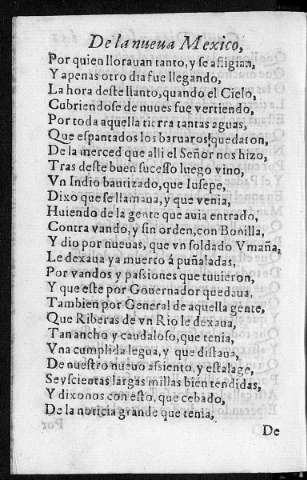 De la nueua Mexico,
Por quien llorauan tanto, y se afligian,
Y apenas otro dia fue llegando,
La hora deste llanto, quando el Cielo,
Cubriendose de nuues fue vertiendo,
Por toda aquella tierra tantas aguas,
Que espantados los baruaros quedaron,
De la merced que alli el Señor nos hizo,
Tras deste buen sucesso luego vino,
Vn Indio bautizado, que Iusepe,
Dixo que se llamaua, y que venia,
Huiendo de la gente que auia entrado,
Contra vando, y sin orden, con Bonilla,
Y dio por nueuas, que vn soldado Vmaña,
Le dexaua ya muerto á puñaladas,
Por vandos y passiones que tuuieron,
Y que este por Gouernador quedaua,
Tambien por General de aquella gente,
Que Riberas de vn Rio le dexaua,
Tan ancho y caudaloso, que tenia,
Vna cumplida legua, y que distaua,
De nuestro nueuo assiento, y estalage,
Seyscientas largas millas bien tendidas,
Y dixonos con esto, que cebado,
De la noticia grande que tenia,
De